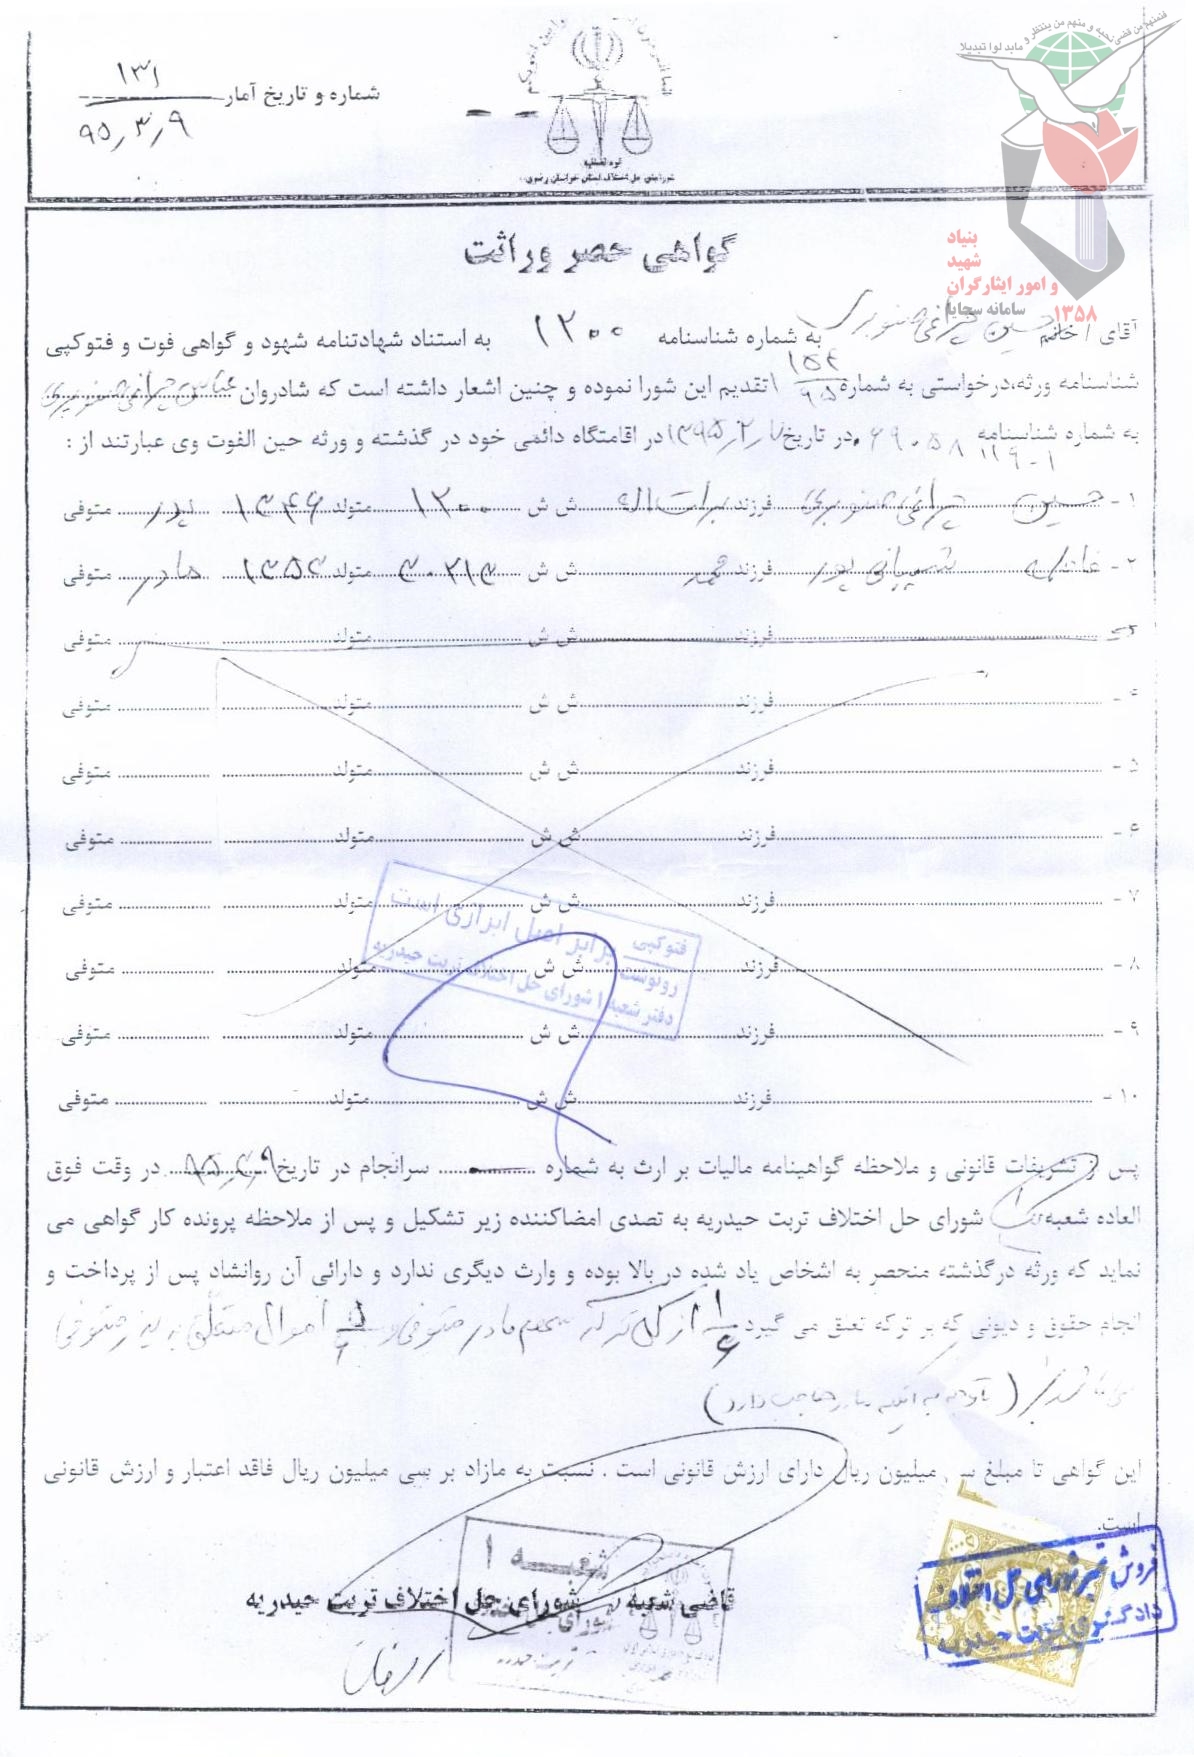 فمنهم من قضی نحبه و منهم من ینتظر و مابدلوا تبدیلا
بنیاد
شهید
و امور ایثارگران
سامانه سجایا ۱۳۵۸
قوه قضاییه
شورای حل اختلاف استان خراسان رضوی
شماره و تاریخ آمار ۱۳۱
۹۵/۳/۹
گواهی حصر وراثت
آقای / خانم حسین چراغی صنوبری به شماره شناسنامه ۱۲۰۰ به استناد شهادتنامه شهود و گواهی فوت و فتوکپی
شناسنامه ورثه،درخواستی به شماره ۱۵۴/۹۵ تقدیم این شورا نموده و چنین اشعار داشته است که شادروان عباس چراغی صنوبری
به شماره شناسنامه در تاریخ ۱۳۹۵/۲/۷ در اقامتگاه دائمی خود در گذشته و ورثه حین الفوت وی عبارتند از :
۱ - حسین چراغی صنوبری فرزند برات اله ش ش ۱۲۰۰ متولد ۱۳۴۶ پدر متوفی
۲ - شیبانی پور فرزند محمد ش ش متولد ۱۳۵۳ مادر متوفی
۳ - فرزند ش ش متولد متوفی
۴ - فرزند ش ش متولد متوفی
۵ - فرزند ش ش متولد متوفی
۶ - فرزند ش ش متولد متوفی
۷ - فرزند ش ش متولد متوفی
۸ - فرزند ش ش متولد متوفی
۹ - فرزند ش ش متولد متوفی
۱۰ - فرزند ش ش متولد متوفی
فتوکپی
رونوشت
برابر اصل ابرازی است
دفتر شعبه ۱ شورای حل اختلاف تربت حیدریه
پس از تشریفات قانونی و ملاحظه گواهینامه مالیات بر ارث به شماره سرانجام در تاریخ ۹۵/۳/۹ در وقت فوق
العاده شعبه ۱ شورای حل اختلاف تربت حیدریه به تصدی امضاکننده زیر تشکیل و پس از ملاحظه پرونده کار گواهی می
نماید که ورثه درگذشته منحصر به اشخاص یاد شده در بالا بوده و وارث دیگری ندارد و دارائی آن روانشاد پس از پرداخت و
انجام حقوق و دیونی که بر ترکه تعلق می گیرد ۱/۶ از کل ترکه سهم مادر متوفی و ۵/۶ اموال متعلق به پدر متوفی
می باشد (باتوجه به اینکه مادر حاجب دارد)
این گواهی تا مبلغ سی میلیون ریال دارای ارزش قانونی است . نسبت به مازاد بر سی میلیون ریال فاقد اعتبار و ارزش قانونی
است.
قاضی شعبه شورای حل اختلاف تربت حیدریه
شعبه ۱
فروش تمبر شورای حل اختلاف
دادگستری تربت حیدریه